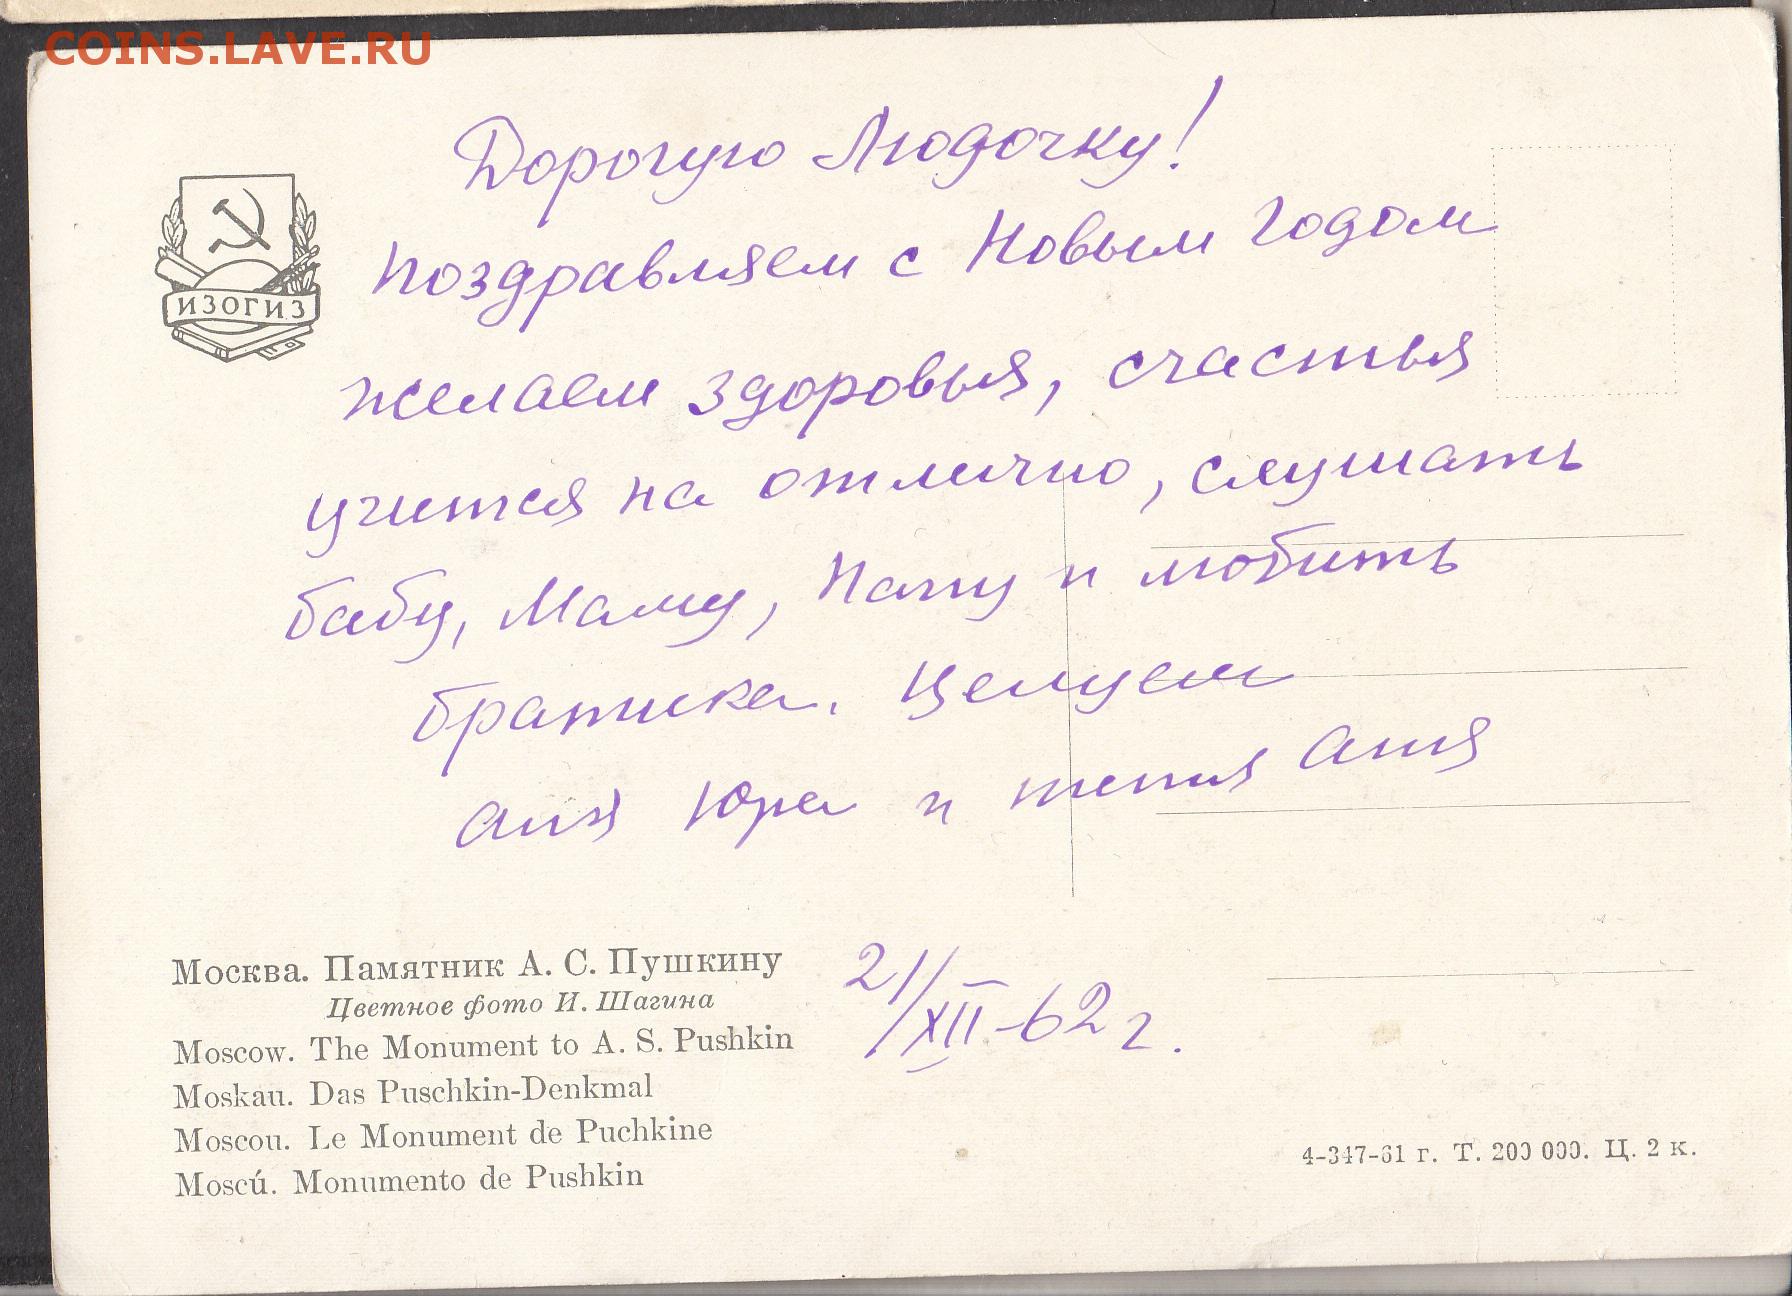 COINS.LAVE.RU
Дорогую Людочку!
Поздравляем с Новым Годом
желаем здоровья, счастья
учится на отлично, слушать
бабу, Маму, Папу и любить
братика. Целуем
Аня Юра и тетя Аня
ИЗОГИЗ
Москва. Памятник А. С. Пушкину
Цветное фото И. Шагина
Moscow. The Monument to A. S. Pushkin
Moskau. Das Puschkin-Denkmal
Moscou. Le Monument de Puchkine
Moscú. Monumento de Pushkin
21/XII-62 г.
4-347-61 г. Т. 200 000. Ц. 2 к.